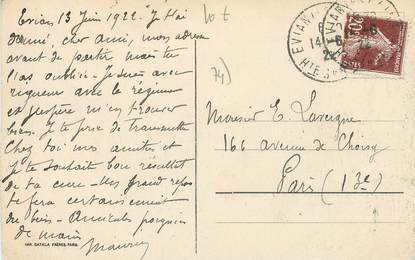 Evian 13 Juin 1922. Je t'ai
donné, cher ami, mon adresse
avant de partir mais tu
l'as oubliée. Je suis avec
rigueur avec le régime
et j'espère m'en trouver
bien. Je te prie de transmettre
chez toi mes amitiés et
je te souhaite bon résultat
de ta cure - Un grand repos
te fera certainement
du bien - Amicales poignées
de main
Maurice
IMP. CATALA FRÈRES, PARIS
10 t
74)
EVIAN
14-6
22
Hte S
Monsieur E. Lavergne
166 avenue de Choisy
Paris (13e)